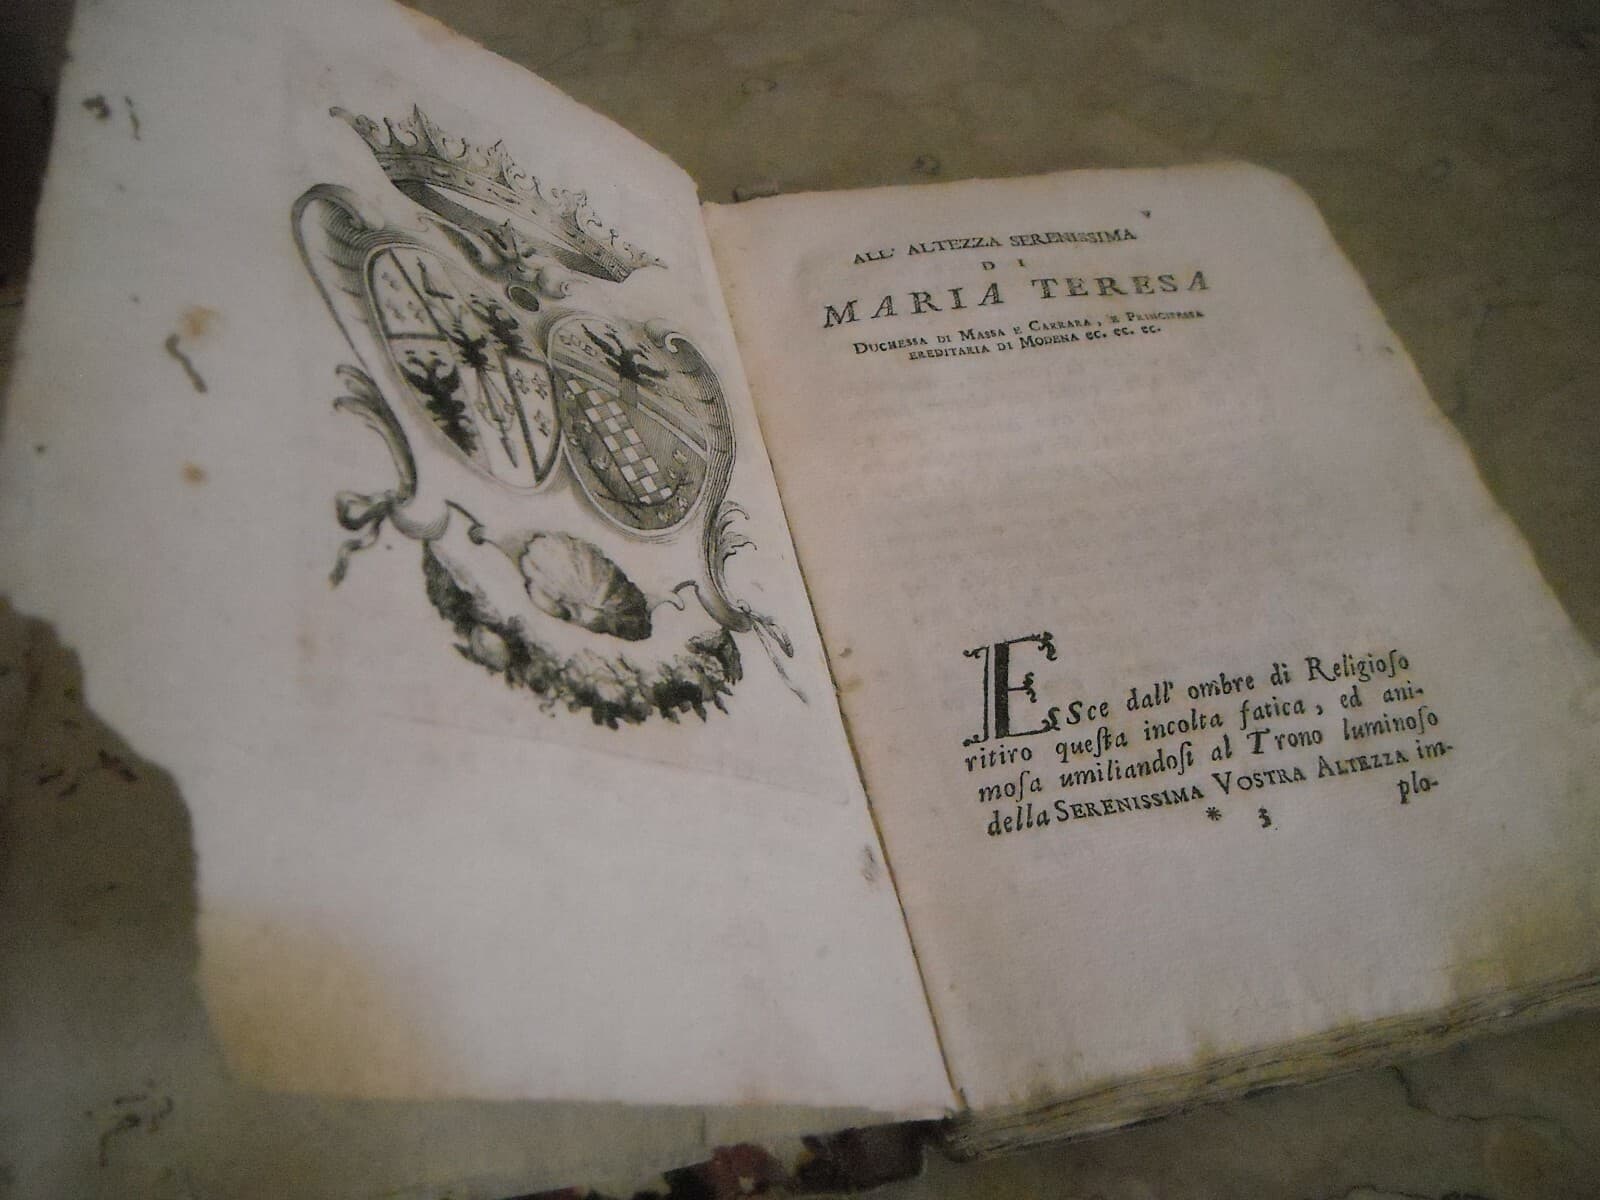 ALL' ALTEZZA SERENISSIMA
DI
MARIA TERESA
DUCHESSA DI MASSA E CARRARA, E PRINCIPESSA
EREDITARIA DI MODENA ec. ec. ec.
ESSce dall' ombre di Religioſo
ritiro queſta incolta fatica, ed ani-
moſa umiliandoſi al Trono luminoſo
della SERENISSIMA VOSTRA ALTEZZA im-
* 3 plo-